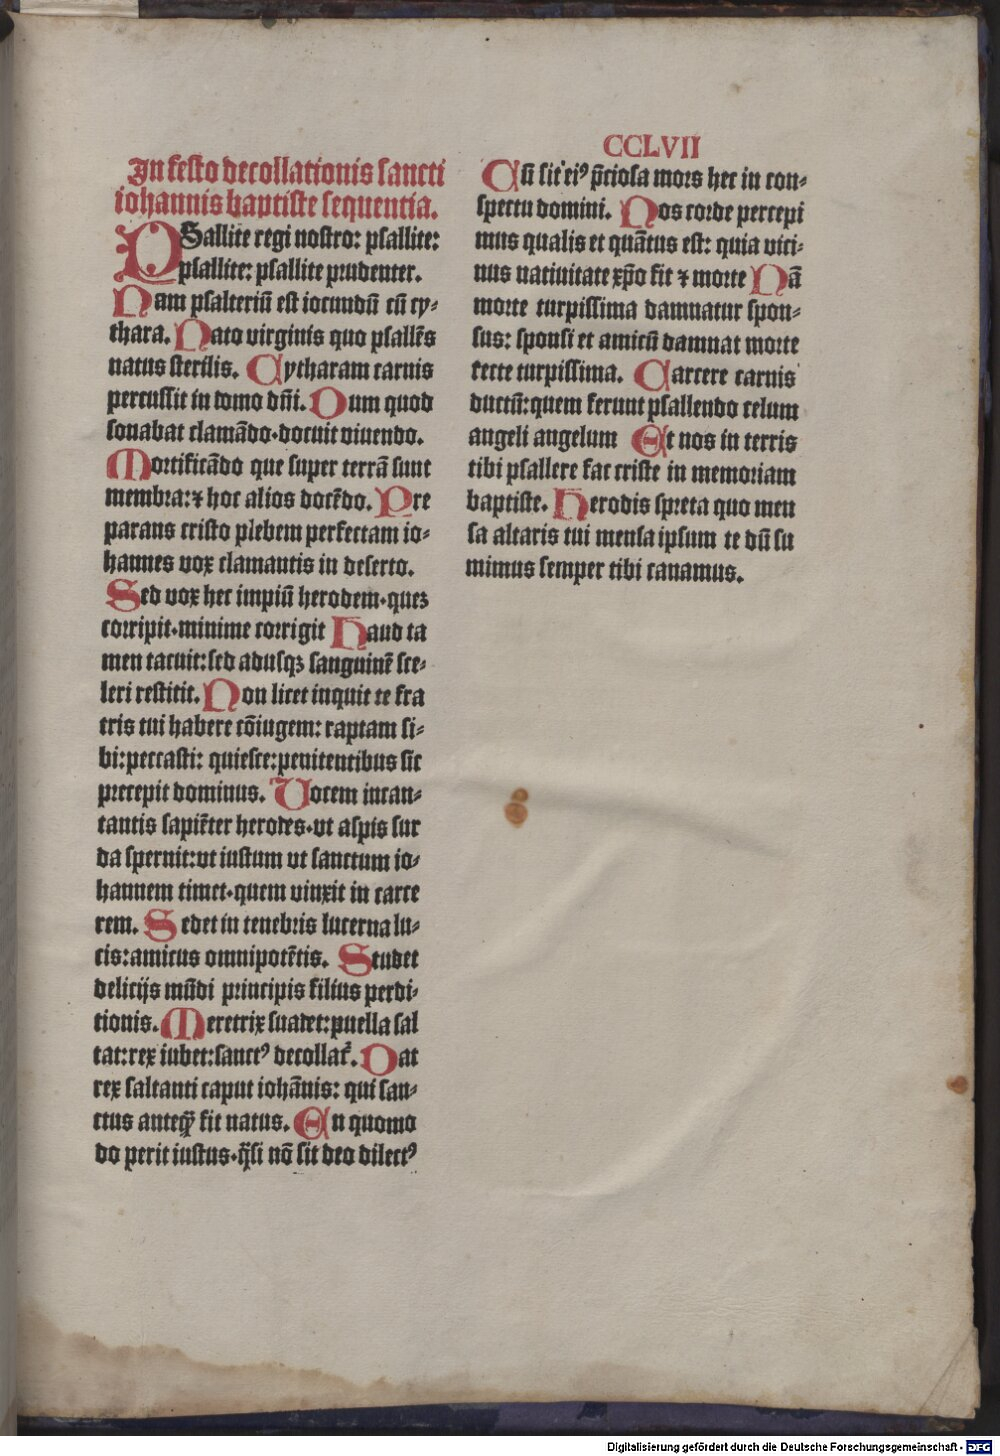 CCLVII
In festo decollationis sancti
iohannis baptiste sequentia.
PSallite regi nostro: psallite:
psallite: psallite prudenter.
Nam psalteriū est iocundū cū cy⸗
thara. Nato virginis quo psallēs
natus sterilis. Cytharam carnis
percussit in tomo dn̄i. Dum quod
sonabat clamādo·docuit viuendo.
Mortificādo que super terrā sunt
membra:⁊ hoc alios docēdo. Pre
parans cristo plebem perfectam io⸗
hannes vox clamantis in deserto.
Sed vox hec impiū herodem·queꝫ
corripit·minime corrigit Haud ta
men tacuit:sed adusqꝫ sanguinē sce⸗
leri restitit. Non licet inquit te fra
tris tui habere cōiugem: raptam si⸗
bi:peccasti: quiesce:penitentibus sic
precepit dominus. Vocem incan⸗
tantis sapiēter herodes·vt aspis sur
da spernit:vt iustum vt sanctum io⸗
hannem timet·quem vinxit in carce
rem. Sedet in tenebris lucerna lu⸗
cis:amicus omnipotētis. Studet
delicijs mūdi principis filius perdi⸗
tionis. Meretrix suadet:puella sal
tat:rex iubet:sanctꝰ decollat̄. Dat
rex saltanti caput iohānis: qui san⸗
ctus anteq̄ fit natus. En quomo
do perit iustus·q̄si nō sit deo dilectꝰ
Cū sit eiꝰ p̄ciosa mors hec in con⸗
spectu domini. Nos corde percepi
mus qualis et quātus est: quia vici⸗
nus natiuitate xp̄o fit ⁊ morte Nā
morte turpissima damnatur spon⸗
sus: sponsi et amicū damnat morte
recte turpissima. Carcere carnis
ductū:quem ferunt psallendo celum
angeli angelum Et nos in terris
tibi psallere fac criste in memoriam
baptiste. Herodis spreta quo men
sa altaris tui mensa ipsum te dū su
mimus semper tibi canamus.
Digitalisierung gefördert durch die Deutsche Forschungsgemeinschaft - DFG